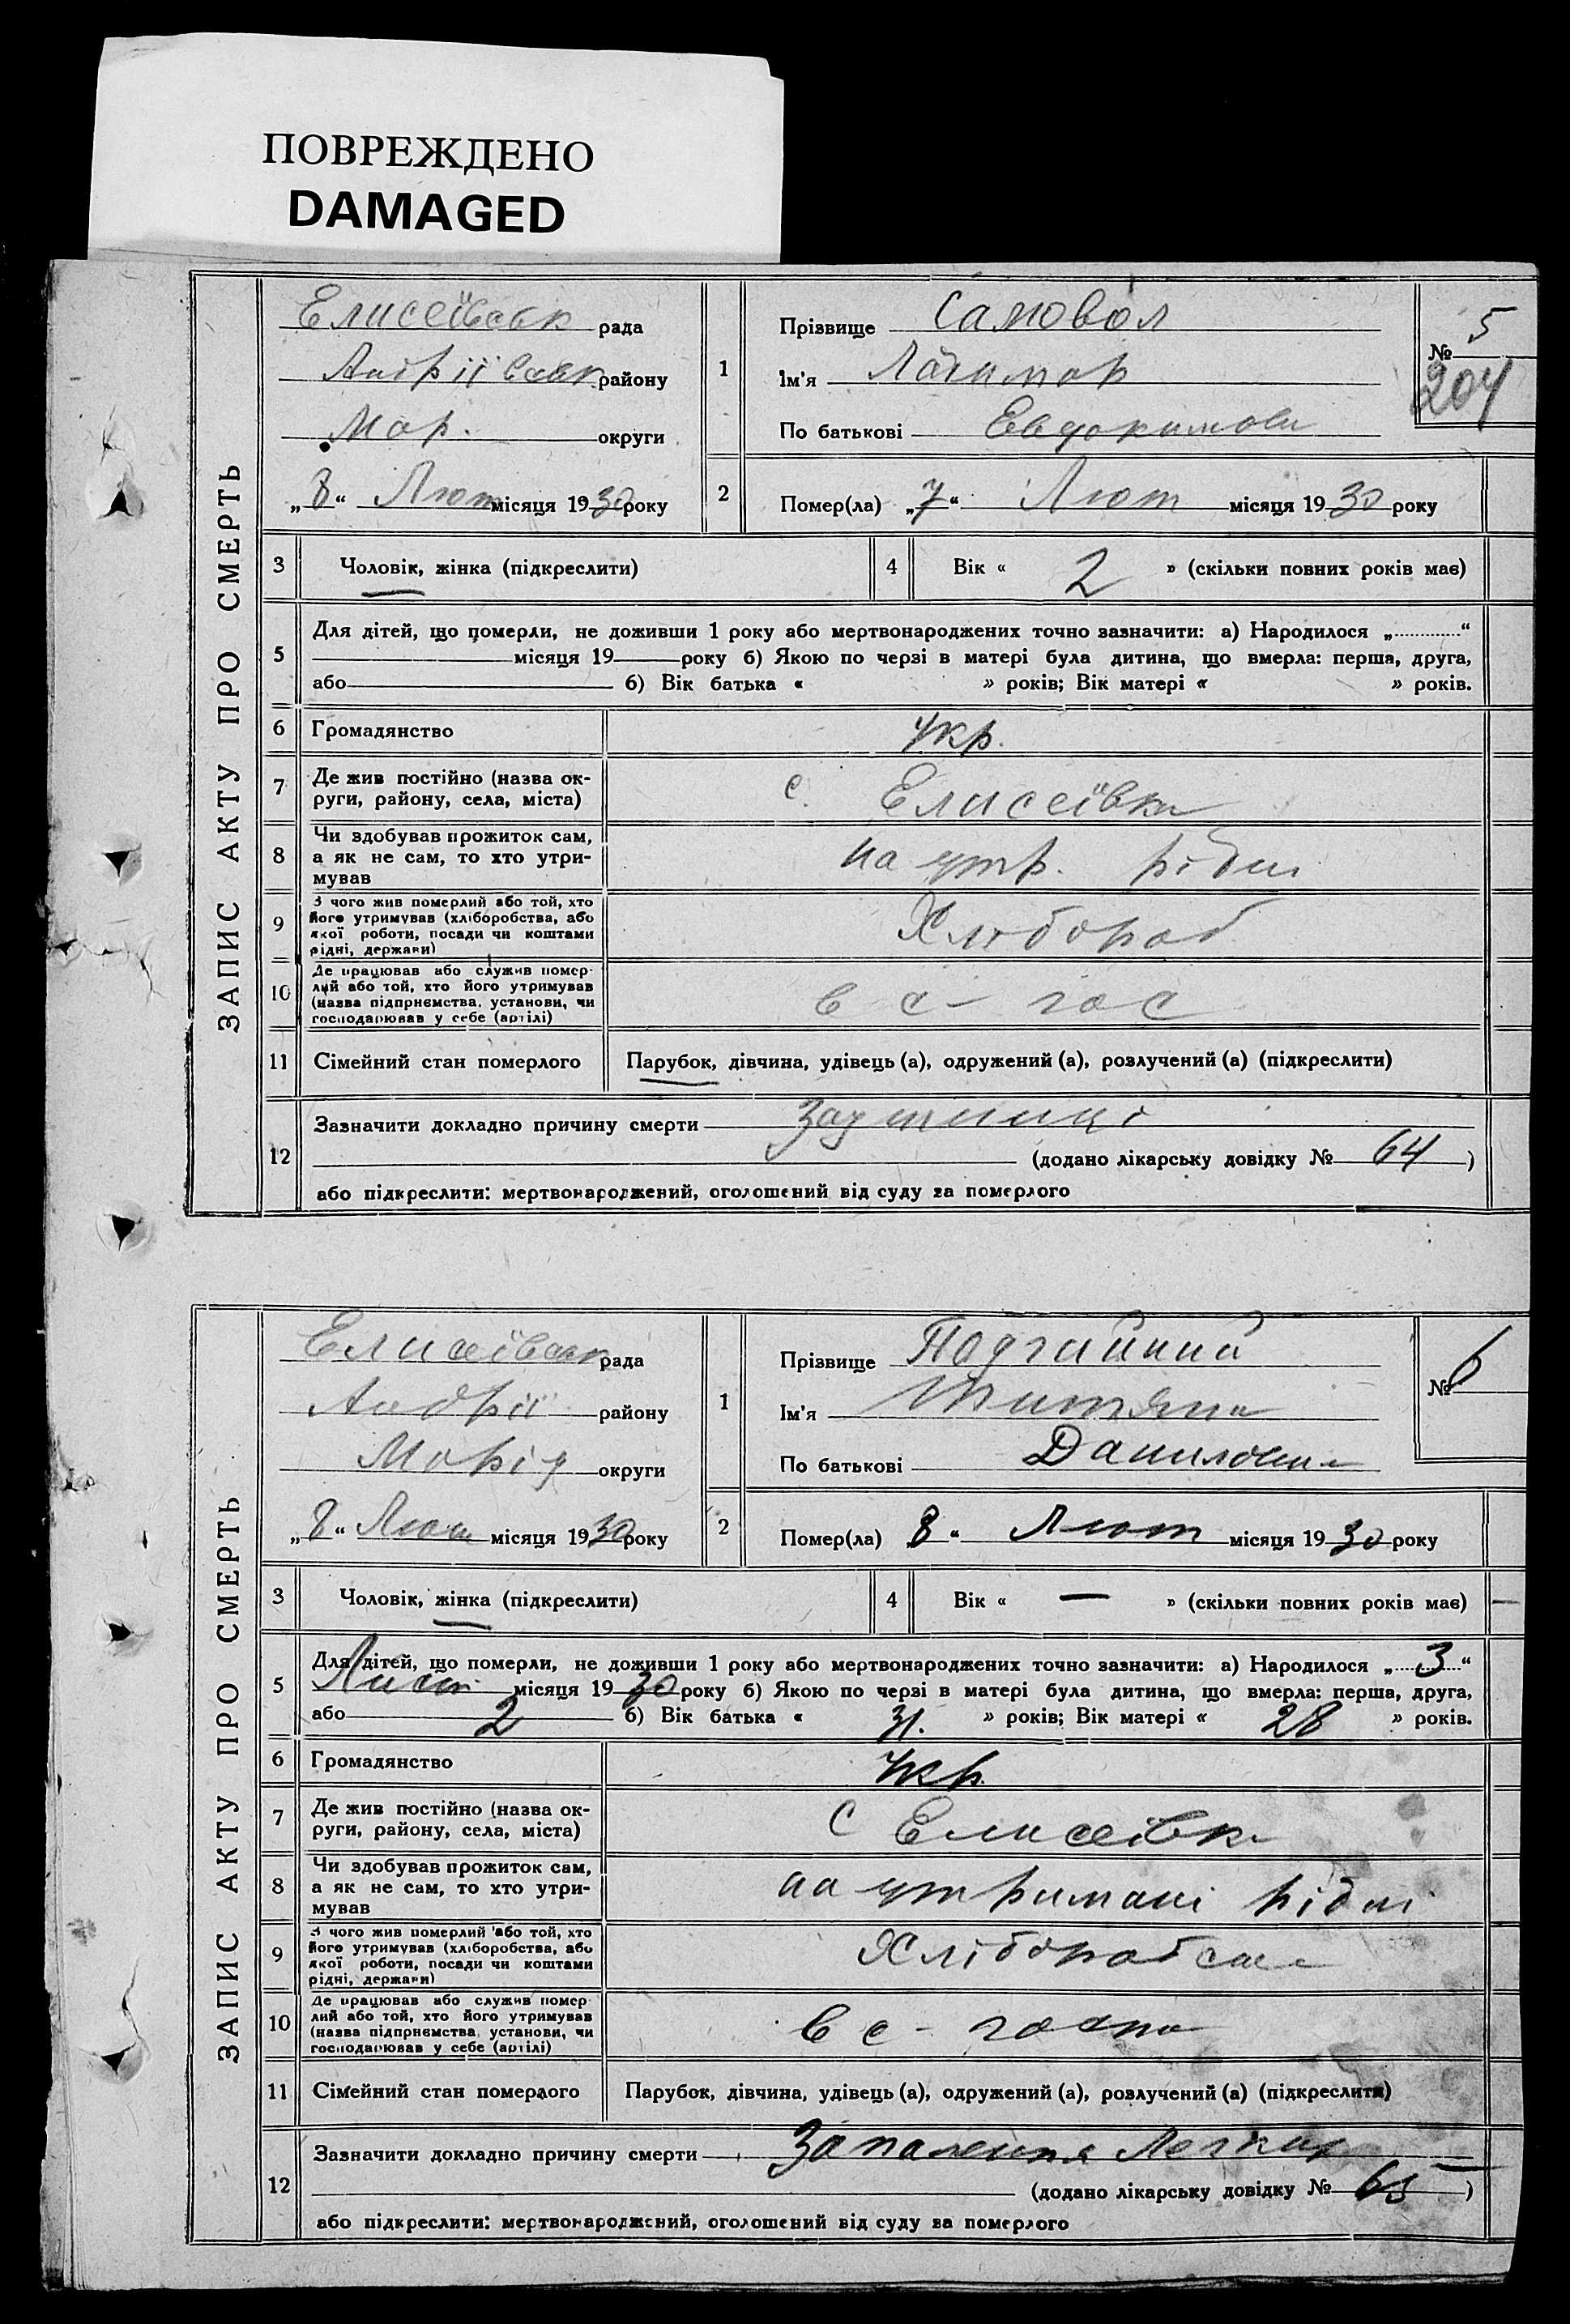 ПОВРЕЖДЕНО
DAMAGED
ЗАПИС АКТУ ПРО СМЕРТЬ
Елисеївськ рада
Андріївськ району
Мар. округи
„8“ Лют місяця 1930 року
1
Прізвище Самовол
Ім'я
По батькові Евдокимови
№ 5
204
2
Помер(ла) „7“ Лют місяця 1930 року
3 Чоловік, жінка (підкреслити)
4 Вік « 2 » (скільки повних років має)
5
Для дітей, що померли, не доживши 1 року або мертвонароджених точно зазначити: а) Народилося „ “
місяця 19 року б) Якою по черзі в матері була дитина, що вмерла: перша, друга,
або б) Вік батька « » років; Вік матері « » років.
6 Громадянство Укр.
7
Де жив постійно (назва ок-
руги, району, села, міста)
с. Елисеївка
8
Чи здобував прожиток сам,
а як не сам, то хто утри-
мував
на утр. рідні
9
З чого жив померлий або той, хто
його утримував (хліборобства, або
якої роботи, посади чи коштами
рідні, держави)
Хлібороб
10
Де працював або служив помер-
лий або той, хто його утримував
(назва підприємства, установи, чи
господарював у себе (артілі)
в с - гос
11 Сімейний стан померлого Парубок, дівчина, удівець (а), одружений (а), розлучений (а) (підкреслити)
12
Зазначити докладно причину смерти
(додано лікарську довідку № 64 )
або підкреслити: мертвонароджений, оголошений від суду за померлого
ЗАПИС АКТУ ПРО СМЕРТЬ
Елисеївськ рада
Андрії району
Маріу округи
„8“ Лют місяця 1930 року
1
Прізвище Подгайний
Ім'я
По батькові Даниловна
№ 6
2
Помер(ла) 8 “ Лют місяця 1930 року
3 Чоловік, жінка (підкреслити)
4 Вік « — » (скільки повних років має)
5
Для дітей, що померли, не доживши 1 року або мертвонароджених точно зазначити: а) Народилося „ 3 “
місяця 1930 року б) Якою по черзі в матері була дитина, що вмерла: перша, друга,
або 2 б) Вік батька « 31. » років; Вік матері « 28 » років.
6 Громадянство Укр.
7
Де жив постійно (назва ок-
руги, району, села, міста)
с Елисеївка
8
Чи здобував прожиток сам,
а як не сам, то хто утри-
мував
на утримані рідні
9
З чого жив померлий або той, хто
його утримував (хліборобства, або
якої роботи, посади чи коштами
рідні, держави)
10
Де працював або служив помер-
лий або той, хто його утримував
(назва підприємства, установи, чи
господарював у себе (артілі)
в с -
11 Сімейний стан померлого Парубок, дівчина, удівець (а), одружений (а), розлучений (а) (підкреслити)
12
Зазначити докладно причину смерти Запалення Легких
(додано лікарську довідку № 65 )
або підкреслити: мертвонароджений, оголошений від суду за померлого